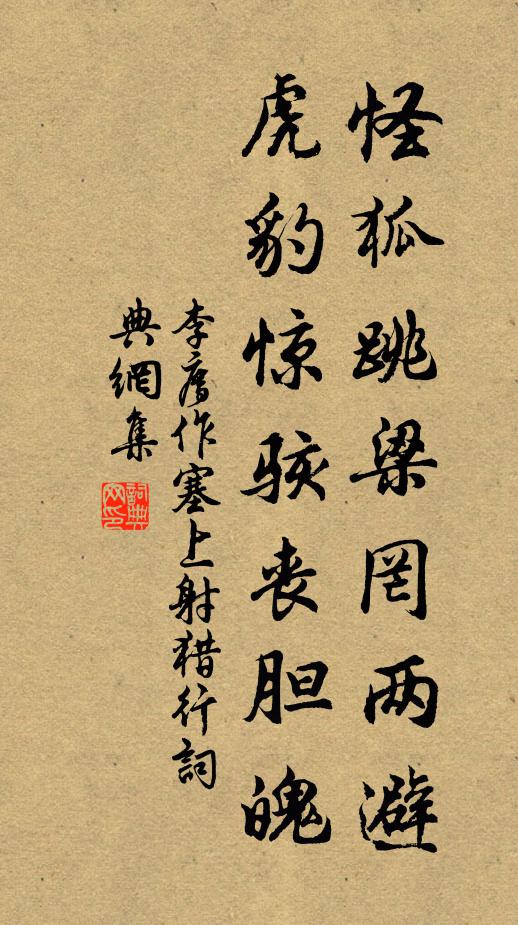 怪狐跳梁罔两避
虎豹惊骇丧胆魄
李作塞上射猎行詞
典網集
詞典
网印